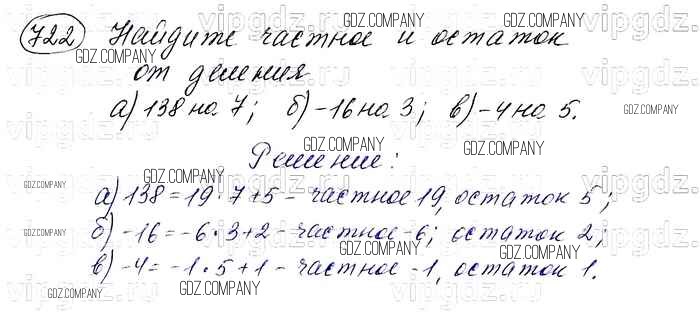 722 Найдите частное и остаток
от деления
а) 138 на 7; б) -16 на 3; в) -4 на 5.
Решение:
а) 138 = 19 · 7 + 5 - частное 19, остаток 5;
б) -16 = -6 · 3 + 2 - частное -6; остаток 2;
в) -4 = -1 · 5 + 1 - частное -1, остаток 1.
GDZ.COMPANY
vipgdz.ru